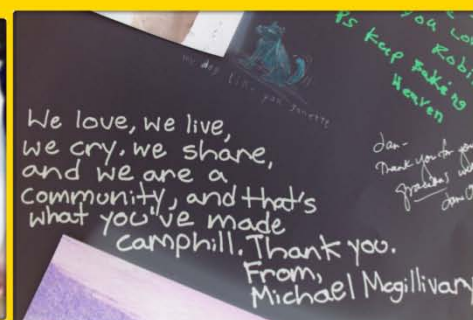 my dog like you
We love, we live,
we cry, we share,
and we are a
community, and that's
what you've made
camphill. Thank you.
From,
Michael Mcgillivary
you
Robi
PS Keep
Heaven
Jan-
Thank you for you
gracious